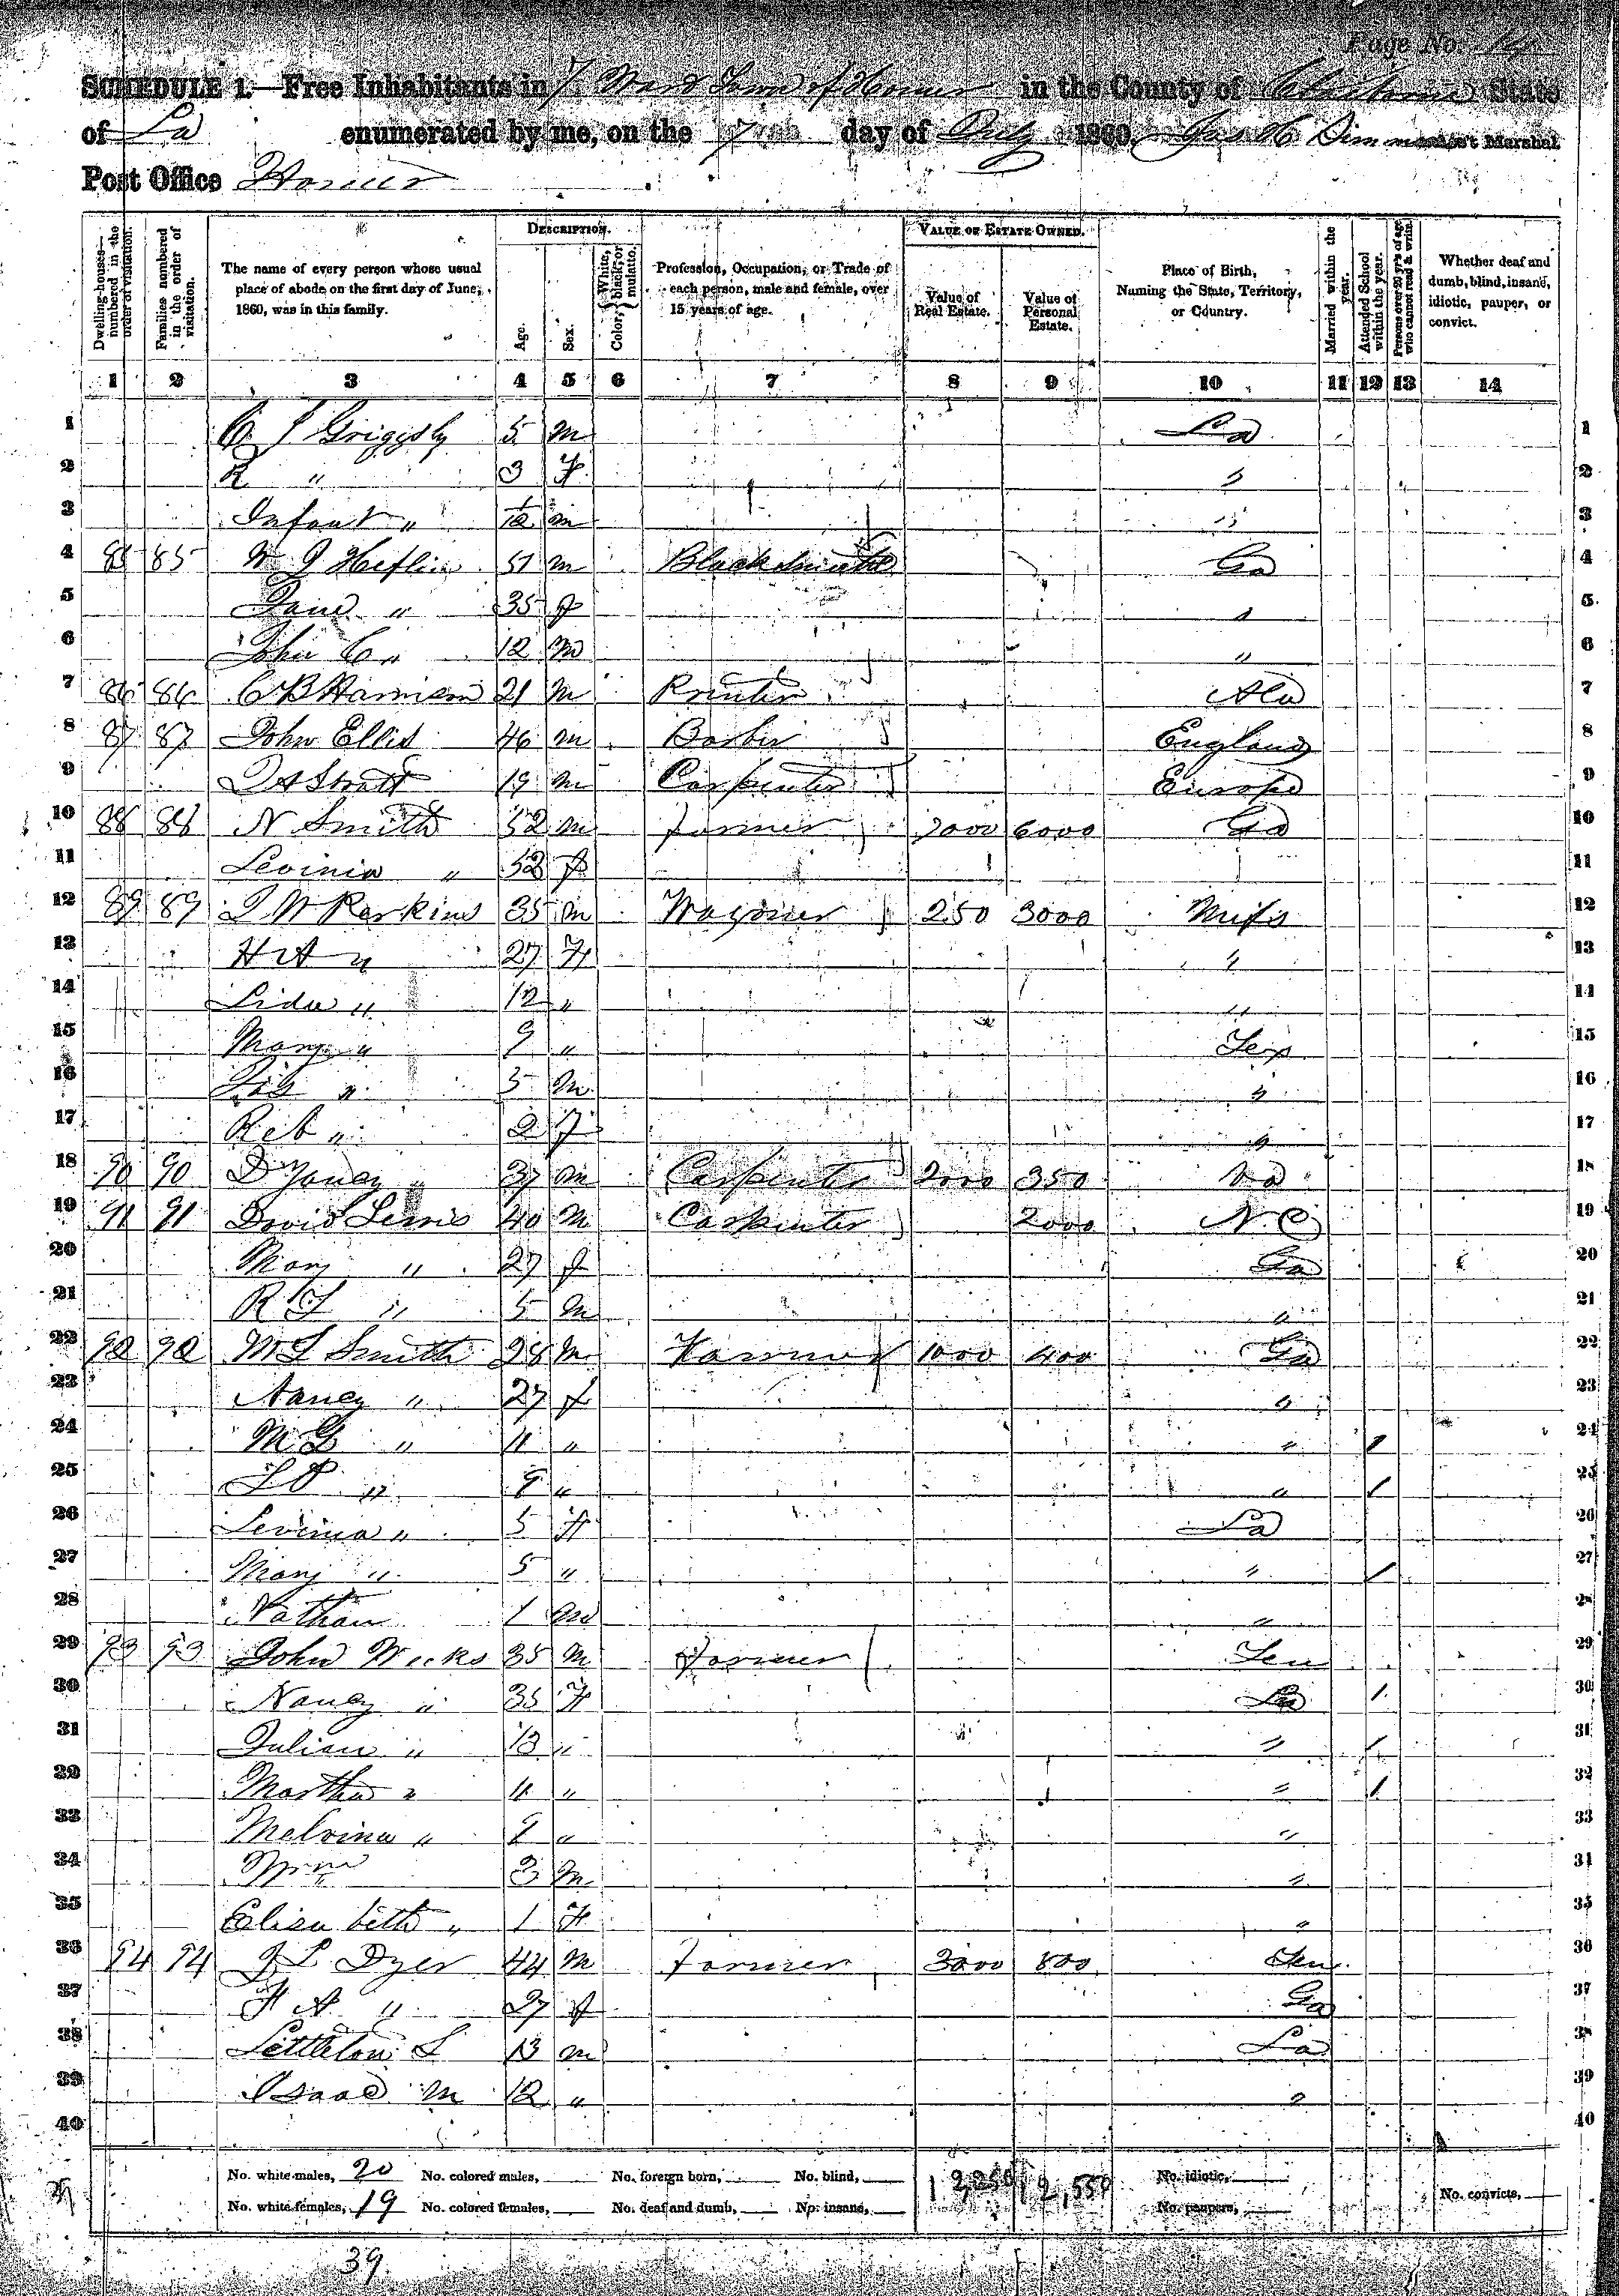 Page No. 
SCHEDULE 1.—Free Inhabitants in 7 Ward Town of Homer in the County of Claiborne State
of La enumerated by me, on the 7 day of July 1860. Jas H Simm Ass't Marshal
Post Office Homer
Dwelling-houses—numbered in the order of visitation.
Families numbered in the order of visitation.
The name of every person whose usual place of abode on the first day of June, 1860, was in this family.
DESCRIPTION.
Age.
Sex.
Color, White, black, or mulatto.
Profession, Occupation, or Trade of each person, male and female, over 15 years of age.
VALUE OF ESTATE OWNED.
Value of Real Estate.
Value of Personal Estate.
Place of Birth, Naming the State, Territory, or Country.
Married within the year.
Attended School within the year.
Persons over 20 y'rs of age who cannot read & write.
Whether deaf and dumb, blind, insane, idiotic, pauper, or convict.
1 2 3 4 5 6 7 8 9 10 11 12 13 14
1 J Griggsby 5 m La 1
2 R " 3 F " 2
3 Infant " 1/12 m " 3
4 85 85 W J Heflin 51 m Blacksmith Ga 4
5 Jane " 35 f " 5
6 John C " 12 m " 6
7 86 86 C B Harrison 21 m Printer Ala 7
8 87 87 John Ellis 46 m Barber England 8
9 19 m Carpenter Europe 9
10 88 88 N Smith 52 m Farmer 2000 6000 Ga 10
11 Levinia " 52 f 11
12 89 89 J W Perkins 35 m Wagoner 250 3000 Miss 12
13 H A " 27 F " 13
14 Lida " 12 " " 14
15 Mary " 9 " Tex 15
16 " 5 m " 16
17 Reb " 2 F " 17
18 90 90 D Yancy 37 m Carpenter 2000 350 Va 18
19 91 91 David Lewis 40 m Carpenter 2000 N.C 19
20 Mary " 27 f Ga 20
21 R L " 5 m " 21
22 92 92 M L Smith 28 m Farmer 1000 400 Ga 22
23 Nancy " 27 f " 23
24 M G " 11 " " / 24
25 L P " 9 " " / 25
26 Levinia " 5 F La 26
27 Mary " 5 " " / 27
28 Nathan 1 m " 28
29 93 93 John Weeks 35 m Farmer Ten 29
30 Nancy " 35 F La / 30
31 Julian " 13 " " / 31
32 Martha " 11 " " / 32
33 Melvina " 9 " " 33
34 Wm " 3 m " 34
35 Elizabeth " 1 F " 35
36 94 94 J L Dyer 44 m Farmer 3000 800 Ten 36
37 F A " 27 f Ga 37
38 Littleton L 13 m La 38
39 Isaac M 12 " " 39
40 40
No. white males, 20 No. colored males, No. foreign born, No. blind, 12,550 No. idiotic,
No. white females, 19 No. colored females, No. deaf and dumb, No. insane, No. paupers, No. convicts,
39